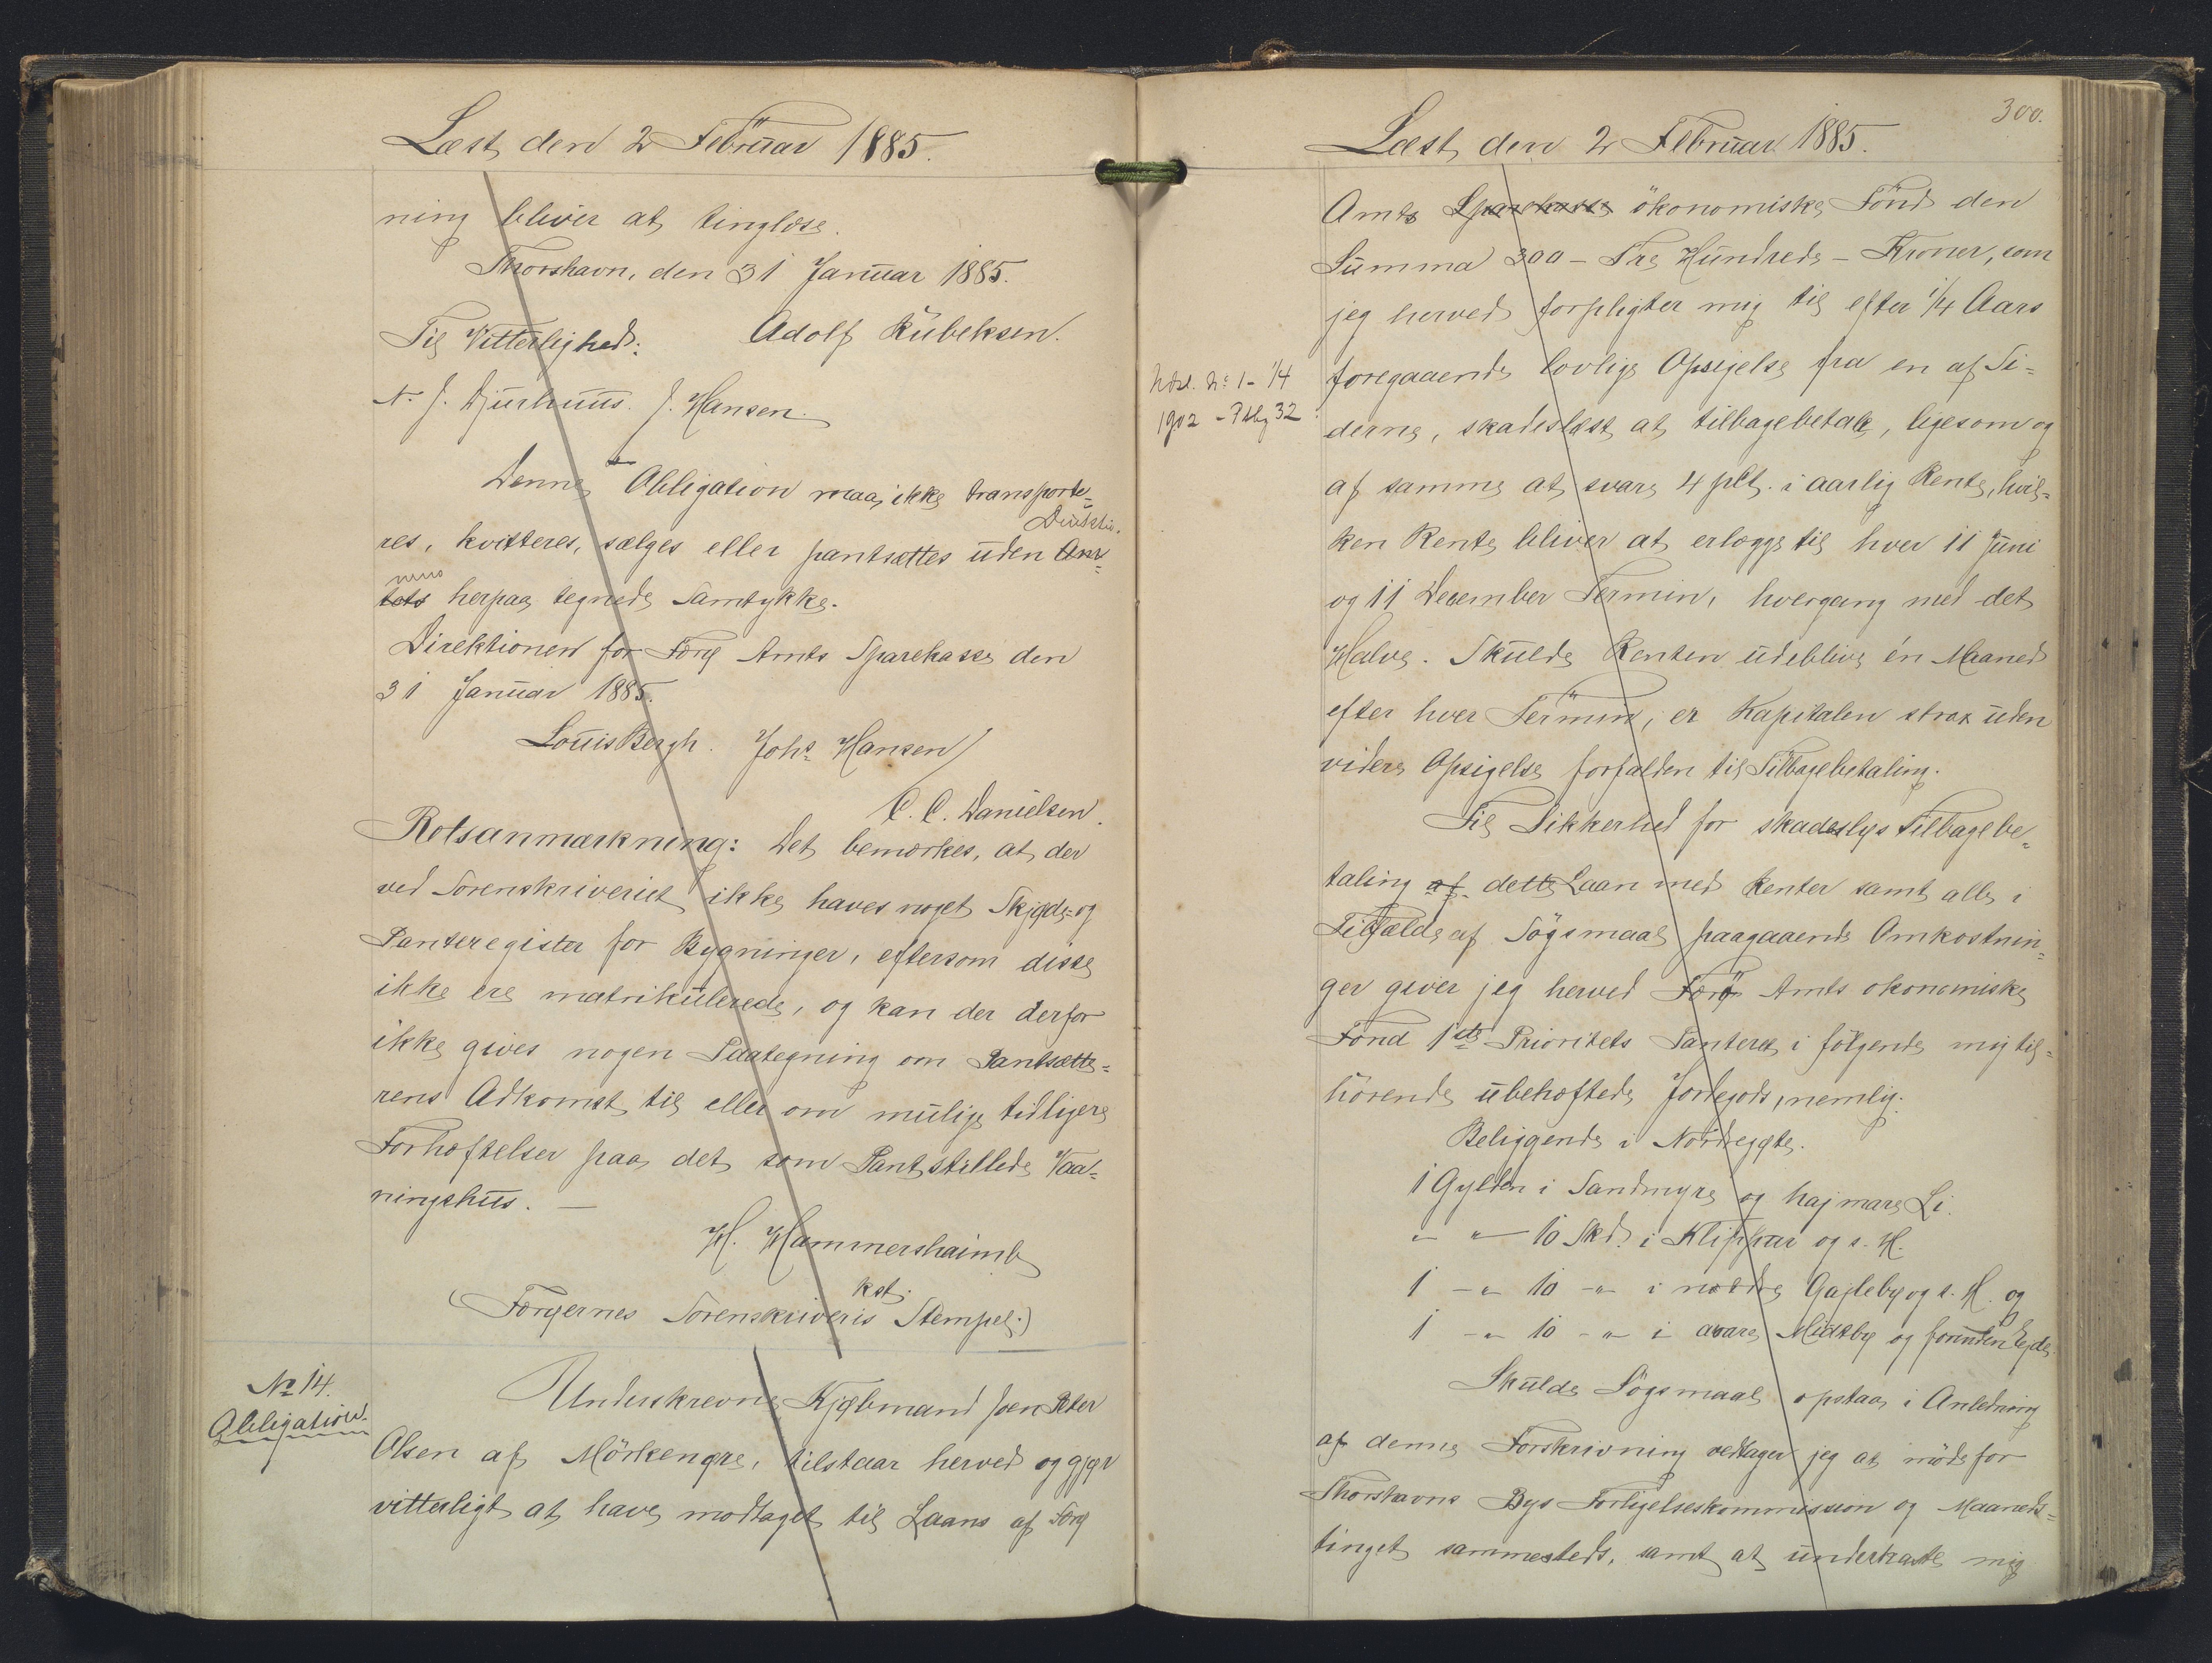 Læst den 2 Februar 1885.
ning bliver at tinglæse.
Thorshavn, den 31 Januar 1885.
Til Vitterlighed: Adolf Lübeksen.
N. J. Djurhuus. J. Hansen.
Denne Obligation maa ikke transporte-
res, kvitteres, sælges eller pantsættes uden Direktio-
nens herpaa tegnede Samtykke.
Direktionen for Færø Amts Sparekasse den
31 Januar 1885.
Louis Bergh. Johs Hansen /
C. C. Danielsen.
Retsanmærkning: Det bemærkes, at der
ved Sorenskriveriet ikke haves noget Skjøde- og
Panteregister for Bygninger, eftersom disse
ikke ere matrikulerede, og kan der derfor
ikke gives nogen Paategning om Pantsætte-
rens Adkomst til eller om mulige tidligere
Forhæftelser paa det som Pant stillede Vaa-
ningshus. —
H. Hammershaimb
kst.
(Færøernes Sorenskriveris Stempel.)
No 14.
Obligation.
Underskrevne Kjøbmand Joen Peter
Olsen af Mörkenøre, tilstaar herved og gjør
vitterligt at have modtaget til Laans af Færø
300.
Læst den 2 Februar 1885.
Amts Sparekasse ökonomiske Fond den
Summa 300 - Tre Hundrede - Kroner, som
jeg herved forpligter mig til efter 1/4 Aars
foregaaende lovlige Opsigelse fra en af Si-
derne, skadesløst at tilbagebetale, ligesom og
af samme at svare 4 pCt. i aarlig Rente, hvil-
ken Rente bliver at erlægge til hver 11 Juni
og 11 December Termin, hvergang med det
Halve. Skulde Renten udeblive én Maaned
efter hver Termin, er Kapitalen strax uden
videre Opsigelse forfalden til Tilbagebetaling.
Til Sikkerhed for skadesløs Tilbagebe-
taling af dette Laan med Renter samt alle i
Tilfælde af Sögsmaal paagaaende Omkostnin-
ger giver jeg herved Færø Amts økonomiske
Fond 1ste Prioritets Panteret i fölgende mig til-
hörende ubehæftede Jordegods, nemlig:
Beliggende i Nordregøte.
1 Gylden i Sandmyre og hajmare Li.
" " 10 Skd. i Klippar og s. H.
1 - " 10 - " i nordre Gajleby og s. H. og
1 - " 10 - " i avare Midtby og forunden Ejde.
Skulde Sögsmaal opstaa i Anledning
af denne Forskrivning vedtager jeg at möde for
Thorshavns Bys Forligelseskommission og Maaneds-
tinget sammesteds, samt at underkaste mig
1902